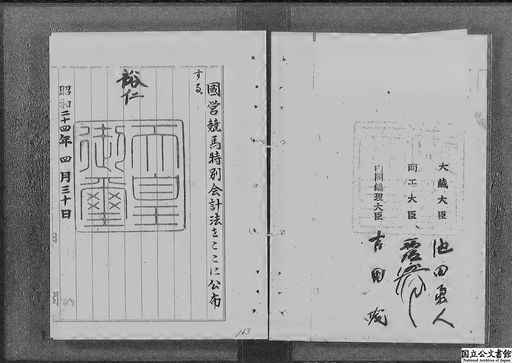 大藏大臣 池田勇人
商工大臣
内閣總理大臣 吉田茂
國営競馬特別会計法をここに公布
する。
裕仁
天皇
御璽
昭和二十四年四月三十日
163
国立公文書館
National Archives of Japan